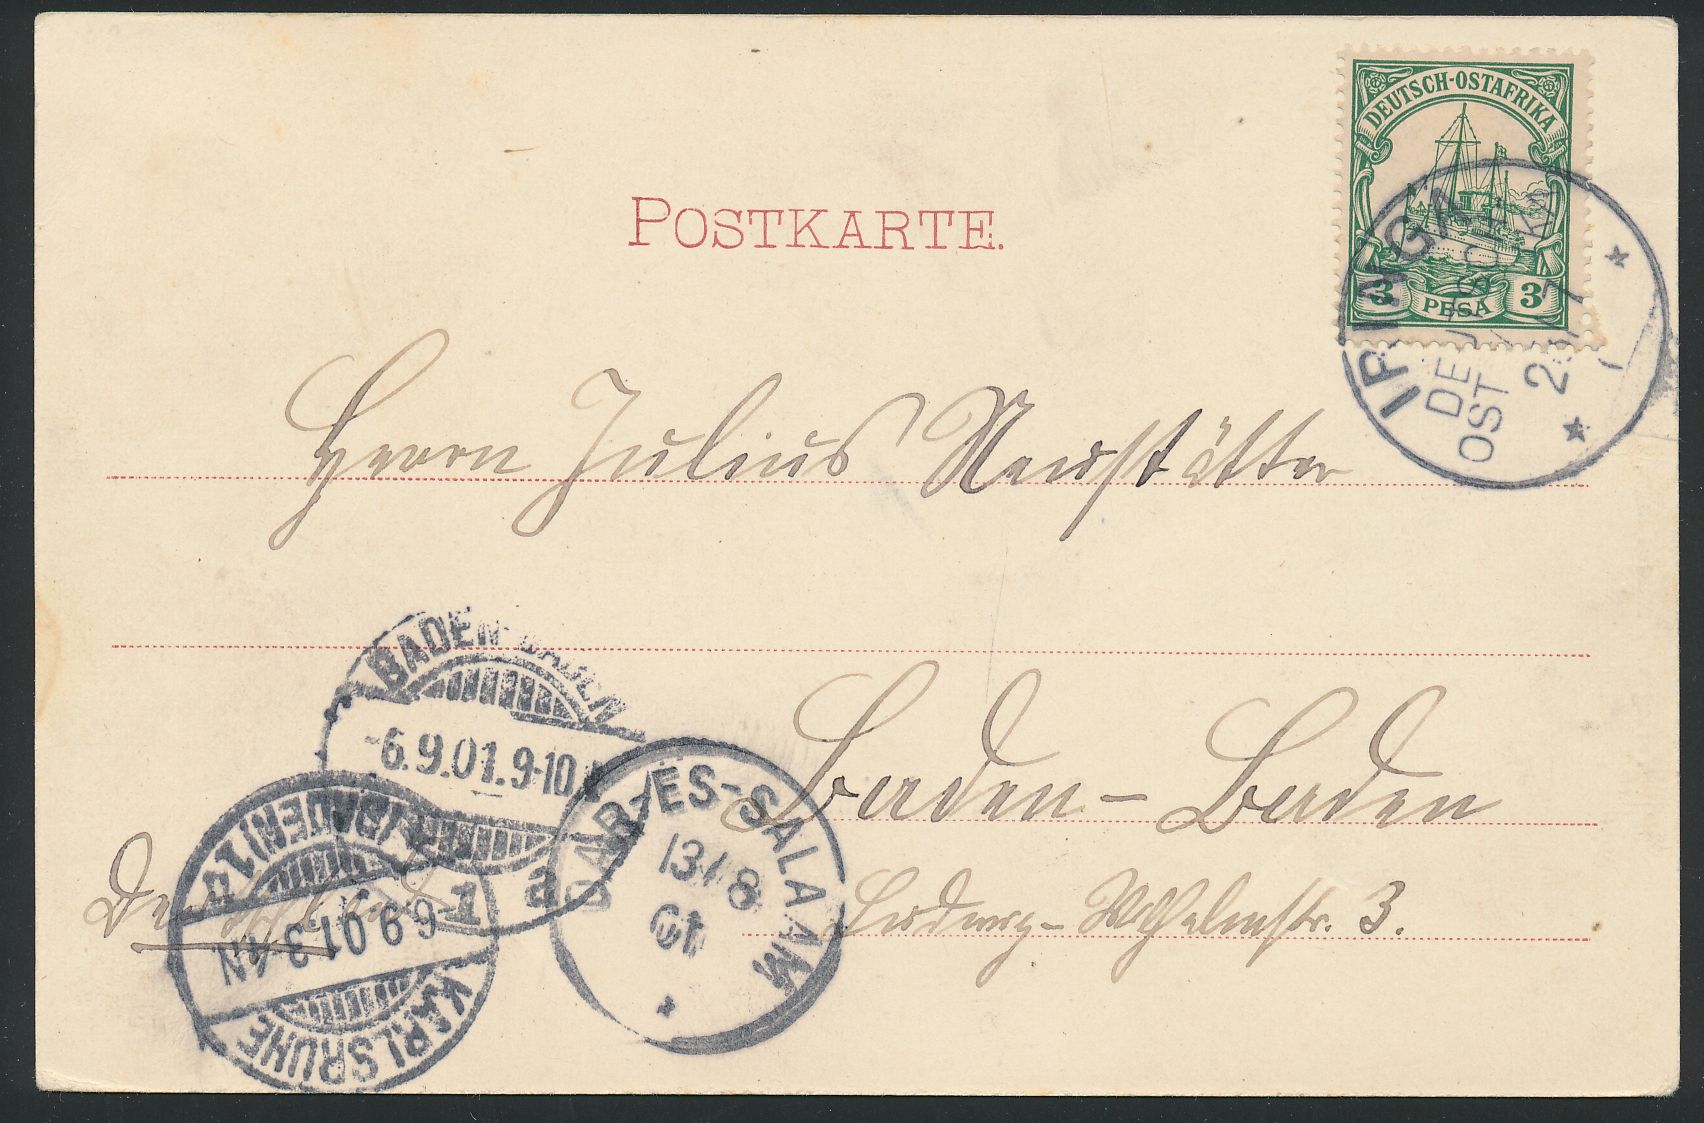 DEUTSCH-OSTAFRIKA
3 PESA 3
POSTKARTE.
IRINGA
DEUTSCH
OST
7
Herrn Julius Neustätter
BADEN-BADEN
-6.9.01.9-10
1 a
DAR-ES-SALAAM
13/8
01
Baden-Baden
Ludwig-Wilhelmstr. 3.
Deutschland
(BADEN) 1
6.9.01.3-4N
KARLSRUHE